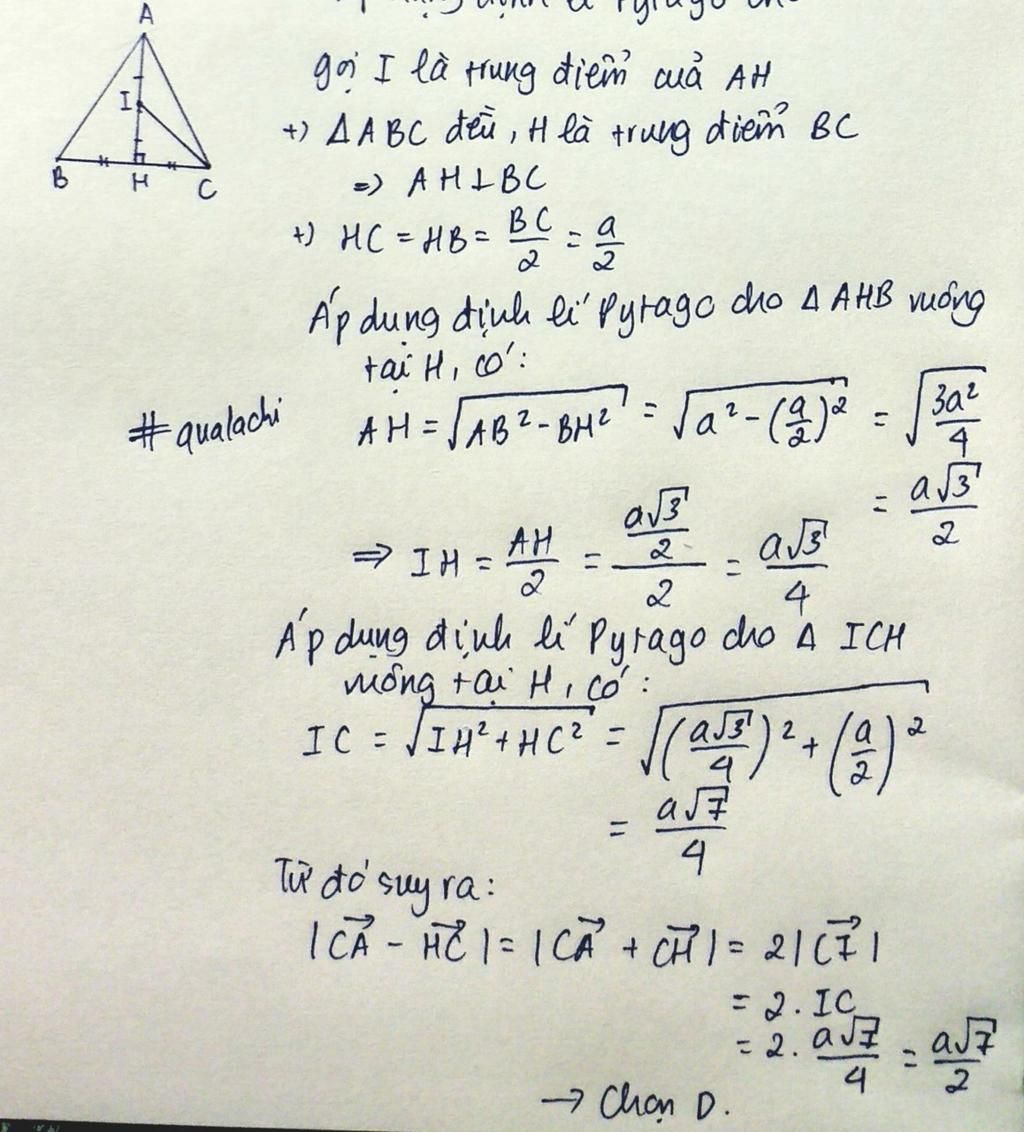 A
I
B H C
định lí Pyrago cho
gọi I là trung điểm của AH
+) ΔABC đều, H là trung điểm BC
=> AH⊥BC
+) HC = HB = BC/2 = a/2
Áp dụng định lí Pyrago cho Δ AHB vuông
tại H, có:
#qualachi
AH = √(AB² - BH²) = √(a² - (a/2)²) = √(3a²/4)
= a√3/2
=> IH = AH/2 = (a√3/2)/2 = a√3/4
Áp dụng định lí Pyrago cho Δ ICH
vuông tại H, có:
IC = √(IH² + HC²) = √((a√3/4)² + (a/2)²)
= a√7/4
Từ đó suy ra:
|CA⃗ - HC⃗| = |CA⃗ + CH⃗| = 2|CI⃗|
= 2. IC
= 2. a√7/4 = a√7/2
→ Chọn D.